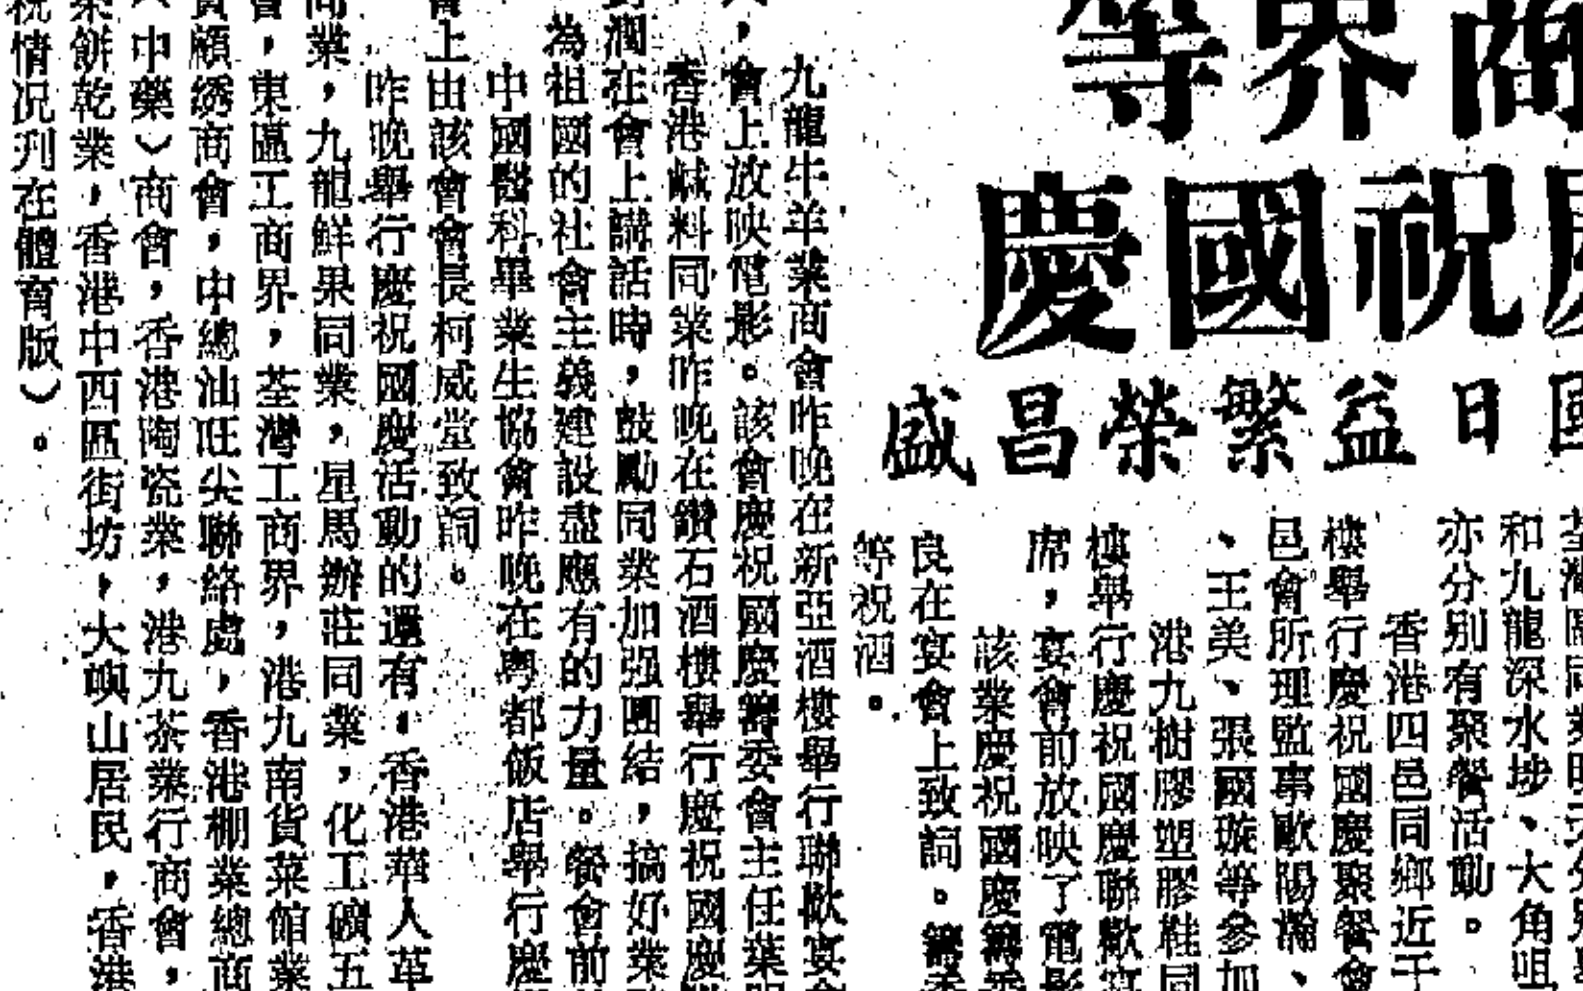 商界等
祝國慶
國日益繁榮昌盛
和九龍深水埗、大角咀
亦分别有聚餐活動。
香港四邑同鄉近千
樓舉行慶祝國慶聚餐會
邑會所理監事歐陽瀚、
、王美、張國璇等參加
港九樹膠塑膠鞋同
樓舉行慶祝國慶聯歡宴
席，宴會前放映了電影
該業慶祝國慶籌委
良在宴會上致詞。籌委
等祝酒。
九龍牛羊業商會昨晚在新亞酒樓舉行聯歡宴會
，會上放映電影。該會慶祝國慶籌委會主任葉明
香港鹹料同業昨晚在鑽石酒樓舉行慶祝國慶
潤在會上講話時，鼓勵同業加强團結，搞好業
為祖國的社會主義建設盡應有的力量。餐會前
中國醫科畢業生協會昨晚在粤都飯店舉行慶
會上由該會會長柯威堂致詞。
昨晚舉行慶祝國慶活動的還有：香港華人革
商業，九龍鮮果同業，星馬辦莊同業，化工礦五
會，東區工商界，荃灣工商界，港九南貨菜館業
貨顧綉商會，中總油旺尖聯絡處，香港棚業總商
（中藥）商會，香港陶瓷業，港九茶業行商會，
業餅乾業，香港中西區街坊，大嶼山居民，香港
祝情况刋在體育版）。